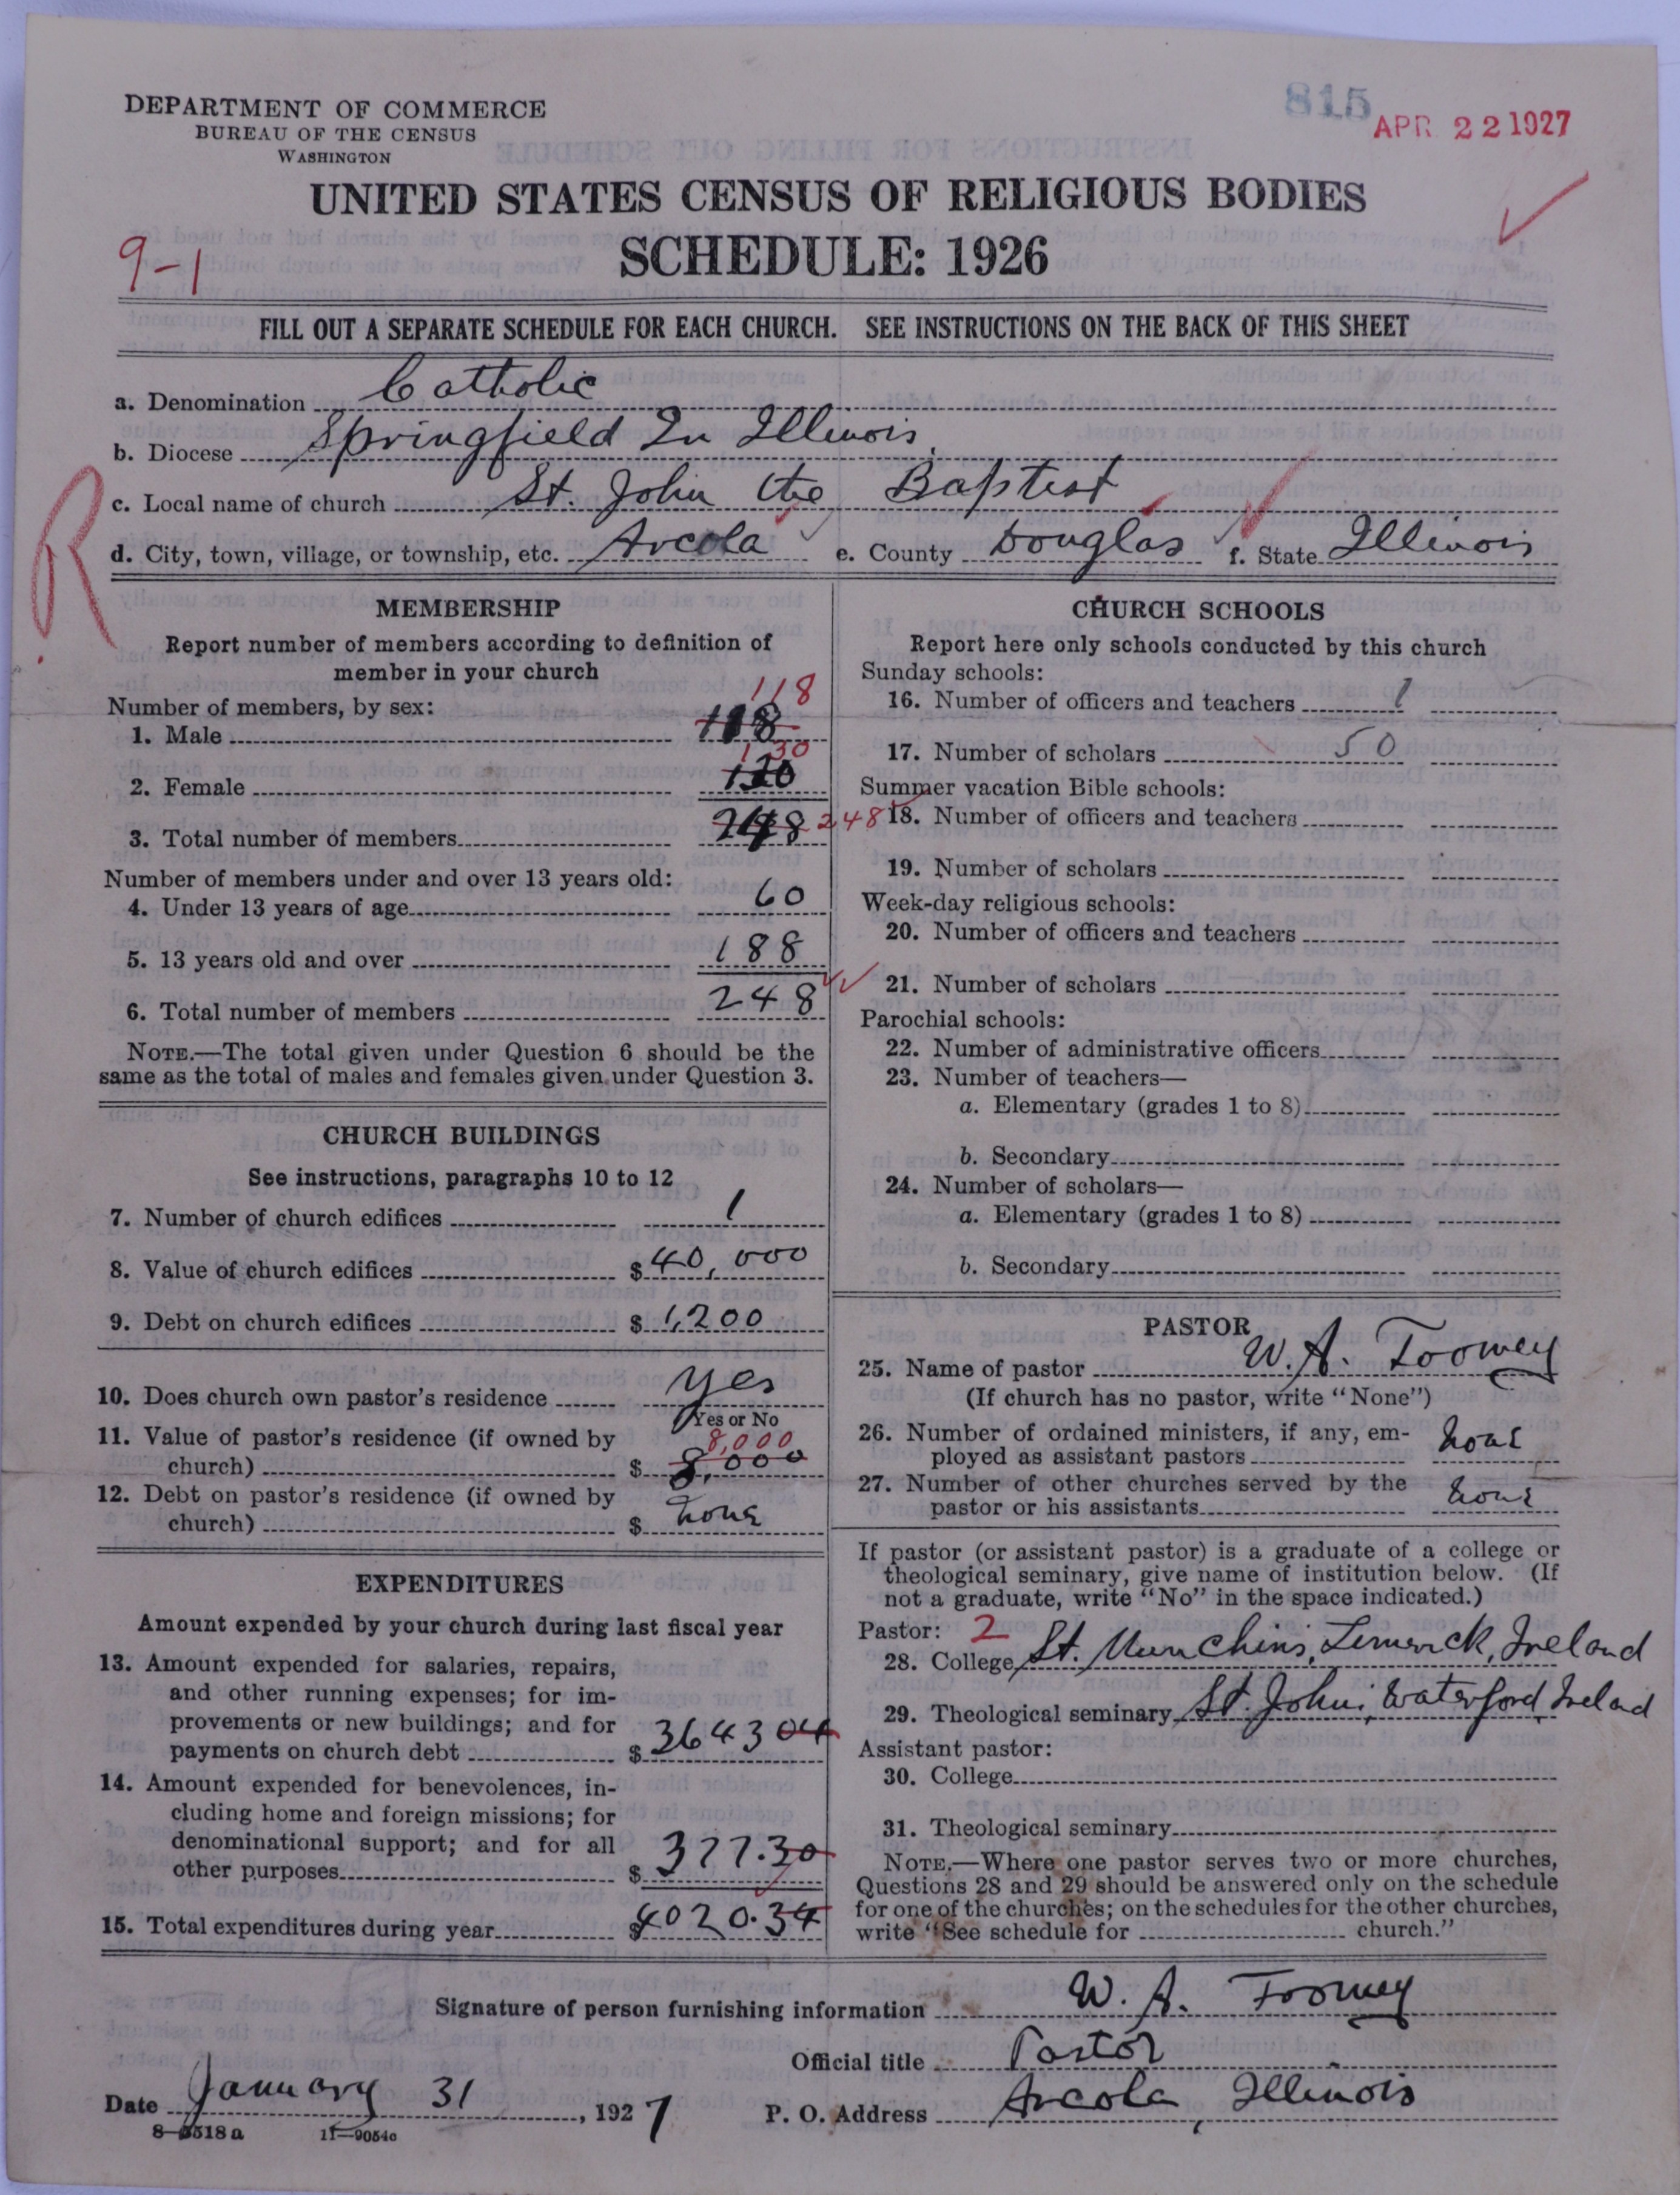 815
APR 22 1927
DEPARTMENT OF COMMERCE
BUREAU OF THE CENSUS
WASHINGTON
UNITED STATES CENSUS OF RELIGIOUS BODIES
SCHEDULE: 1926
9-1
FILL OUT A SEPARATE SCHEDULE FOR EACH CHURCH. SEE INSTRUCTIONS ON THE BACK OF THIS SHEET
a. Denomination Catholic
b. Diocese Springfield In Illinois
c. Local name of church St. John the Baptist
d. City, town, village, or township, etc. Arcola e. County Douglas f. State Illinois
R
MEMBERSHIP
Report number of members according to definition of
member in your church
Number of members, by sex:
118
1. Male 118
130
2. Female 130
3. Total number of members 248 248
Number of members under and over 13 years old:
4. Under 13 years of age 60
5. 13 years old and over 188
6. Total number of members 248
NOTE.—The total given under Question 6 should be the
same as the total of males and females given under Question 3.
CHURCH BUILDINGS
See instructions, paragraphs 10 to 12
7. Number of church edifices 1
8. Value of church edifices $ 40,000
9. Debt on church edifices $ 1,200
10. Does church own pastor's residence yes
Yes or No
11. Value of pastor's residence (if owned by 8,000
church) $ 8,000
12. Debt on pastor's residence (if owned by
church) $ none
EXPENDITURES
Amount expended by your church during last fiscal year
13. Amount expended for salaries, repairs,
and other running expenses; for im-
provements or new buildings; and for
payments on church debt $ 3643 04
14. Amount expended for benevolences, in-
cluding home and foreign missions; for
denominational support; and for all
other purposes $ 377.30
15. Total expenditures during year $ 4020.34
CHURCH SCHOOLS
Report here only schools conducted by this church
Sunday schools:
16. Number of officers and teachers 1
17. Number of scholars 50
Summer vacation Bible schools:
18. Number of officers and teachers
19. Number of scholars
Week-day religious schools:
20. Number of officers and teachers
21. Number of scholars
Parochial schools:
22. Number of administrative officers
23. Number of teachers—
a. Elementary (grades 1 to 8)
b. Secondary
24. Number of scholars—
a. Elementary (grades 1 to 8)
b. Secondary
PASTOR
25. Name of pastor W. A. Toomey
(If church has no pastor, write "None")
26. Number of ordained ministers, if any, em-
ployed as assistant pastors none
27. Number of other churches served by the
pastor or his assistants none
If pastor (or assistant pastor) is a graduate of a college or
theological seminary, give name of institution below. (If
not a graduate, write "No" in the space indicated.)
Pastor: 2
28. College St. Munchins, Limerick, Ireland
29. Theological seminary St. Johns, Waterford, Ireland
Assistant pastor:
30. College
31. Theological seminary
NOTE.—Where one pastor serves two or more churches,
Questions 28 and 29 should be answered only on the schedule
for one of the churches; on the schedules for the other churches,
write "See schedule for church."
Signature of person furnishing information W. A. Toomey
Official title Pastor
Date January 31, 1927 P. O. Address Arcola, Illinois
11—9054c